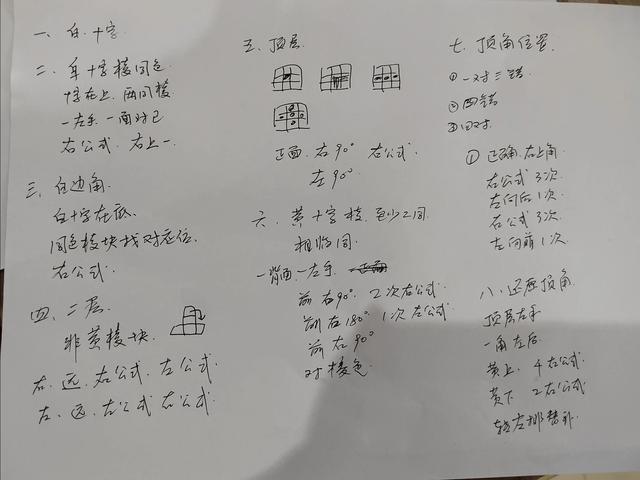 一、白十字
二、白十字棱同色
十字在上、两同棱
一左手、一面对己
右公式、右上一
三、白边角
白十字在底
同色棱块找对应位
右公式
四、二层
非黄棱块
右、远、右公式、左公式
左、远、左公式 右公式
五、顶层
正面、右90° 右公式
左90°
六、黄十字棱、至少2同
相临同
一背面 一左手
前右90° 2次右公式
前右180° 1次左公式
前右90°
对棱色
七、顶角位置
① 一对三错
② 四错
③ 四对
① 正确角右上角
右公式3次
左向后1次
右公式3次
左向前1次
八、还原顶角
顶层左手
一角左后
黄上、4右公式
黄下 2右公式
转左排替补